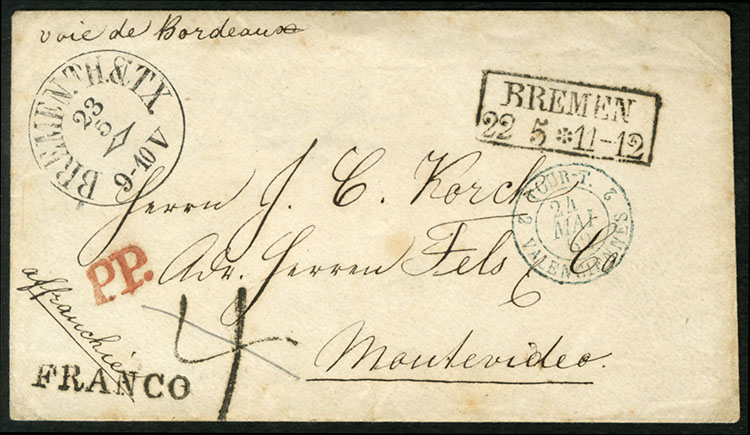 voie de Bordeaux
BREMEN TH.&TX.
23
5
9-10 V
BREMEN
22 5 * 11-12
Herrn J. C. Korck
TOUR-T.
2 2
24
MAI
VALENCIENNES
P.P.
Adr. Herren Fels & C
affranchie
4
Montevideo.
FRANCO